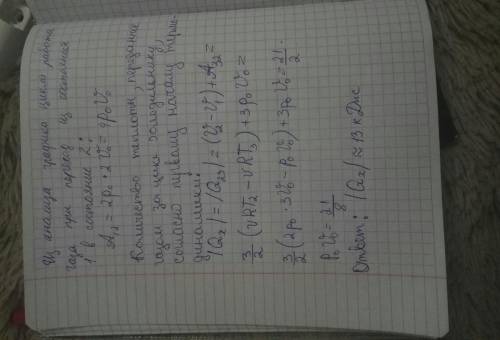 Из анализа графика цикла работа
газа при переходе из состояния
1 в состояние 2:
A₁₂ = 2p₀ · 2V₀ = 4p₀V₀
Количество теплоты, переданное
газом за цикл холодильнику,
согласно первому началу термо-
динамики:
|Q₂| = |Q₂₃| = (U₂ - U₁) + A₃₂ =
3/2 (νRT₂ - νRT₃) + 3p₀V₀ =
3/2 (2p₀ · 3V₀ - p₀V₀) + 3p₀V₀ = 21/2 ·
p₀V₀ = 21/8
Ответ: |Q₂| ≈ 13 кДж